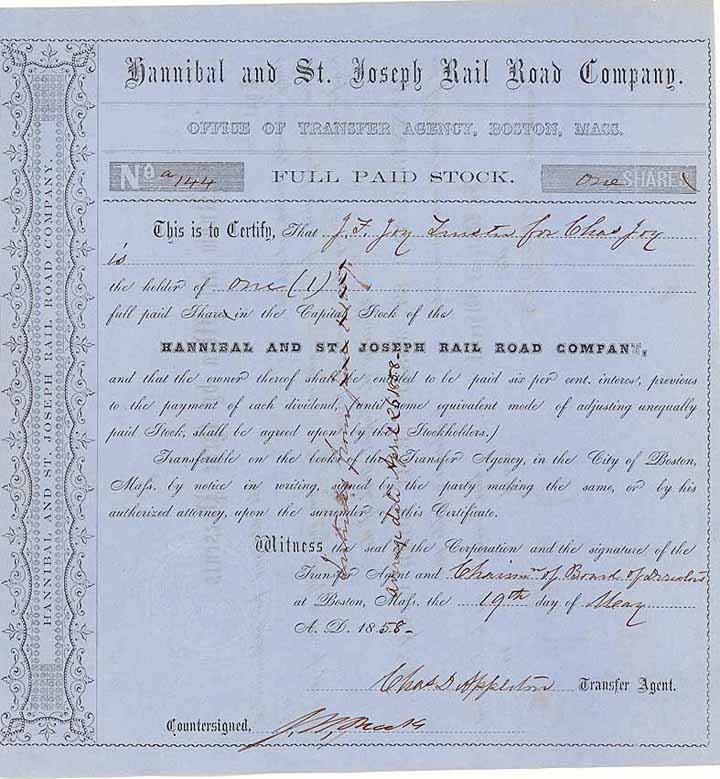 Hannibal and St. Joseph Rail Road Company.
OFFICE OF TRANSFER AGENCY, BOSTON, MASS.
No a 144 FULL PAID STOCK. one SHARE
This is to Certify, That J. F. Joy Trustee for Chas Joy
is
the holder of one (1)
full paid Share in the Capital Stock of the
HANNIBAL AND ST. JOSEPH RAIL ROAD COMPANY,
and that the owner thereof shall be entitled to be paid six per cent. interest, previous
to the payment of each dividend, (until some equivalent mode of adjusting unequally
paid Stock, shall be agreed upon by the Stockholders.)
Transferable on the books of the Transfer Agency, in the City of Boston,
Mass. by notice in writing, signed by the party making the same, or by his
authorized attorney, upon the surrender of this Certificate.
Witness the seal of the Corporation and the signature of the
Transfer Agent and Chairmn of Board of Directors
at Boston, Mass. the 19th day of May
A. D. 1858-
Chas D Appleton Transfer Agent.
Countersigned,
HANNIBAL AND ST. JOSEPH RAIL ROAD COMPANY.
average date April 26 1858-